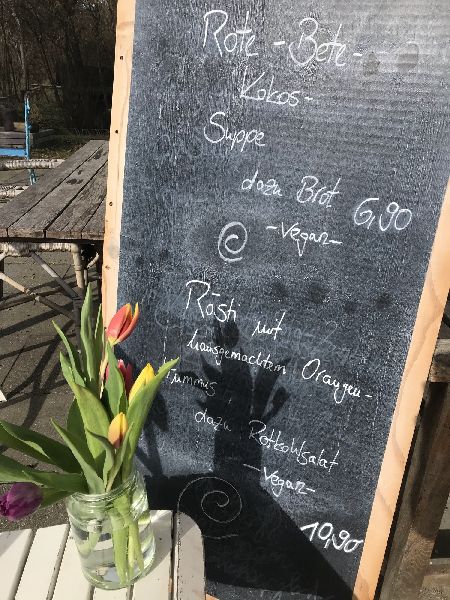 Rote-Bete-
Kokos-
Suppe
dazu Brot 6,90
-vegan-
Rösti mit
hausgemachtem Orangen-
Hummus
dazu Rotkohlsalat
-vegan-
10,90